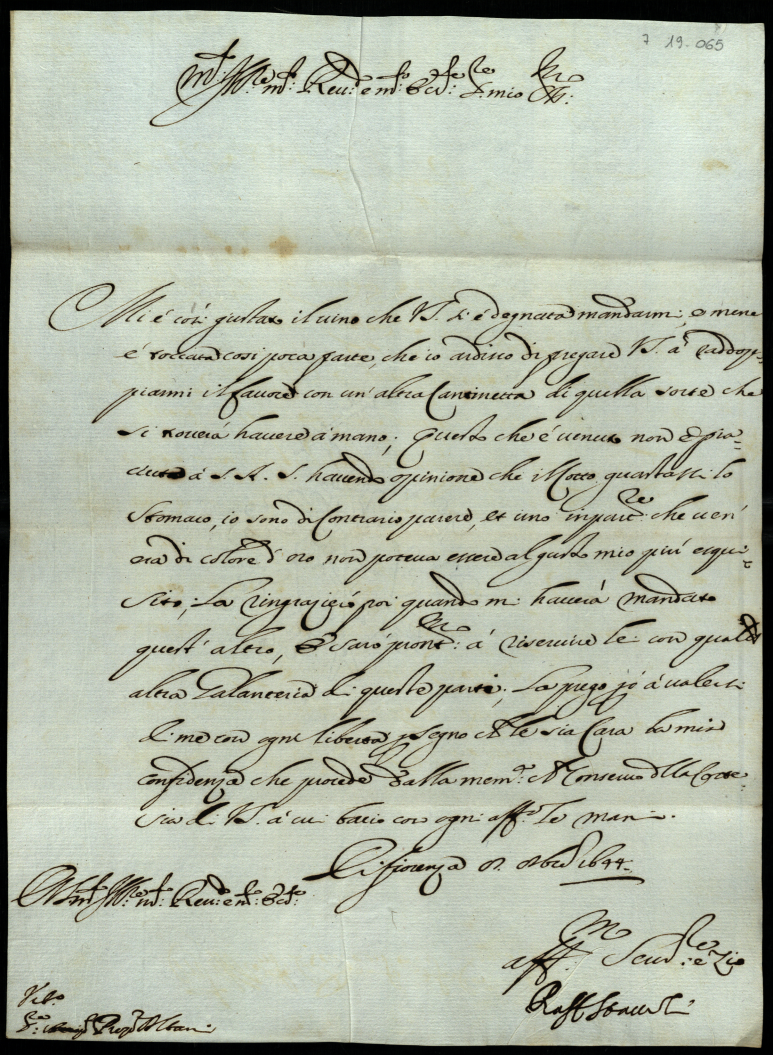 7 19.065
Ill:re Reu:do e Ecc: mio
Mi è così gustato il uino che V.S. si è degnata mandarmi, e mene
è toccata così poca parte, che io ardisco di pregare V.S. à raddop=
piarmi il fauore con un'altra Cantinetta di quella sorte che
si trouerà hauere à mano; Questo che è uenuto non è pia=
ciuto à S.A.S. hauendo opinione che il Motto guastassi lo
Stomaco, io sono di Contrario parere, et uno in part:re che
era di colore d'oro non poteua essere al gusto mio più esqui=
sito; La ringrazierò poi quando mi hauerà mandato
quest'altro, e sarò pront:mo à riseruirle con qualche
altra Galanteria di queste parti; La prego à ualersi
di me con ogni libertà segno che le sia Cara la mia
confidenza che procede dalla mem:a che Conseruo della Corte=
sia di V.S. à cui bacio con ogni aff:to le mani.
Di fiorenza 8bre 1644
Ill:re Reu:do e Ecc:
aff:mo Seru:re e Zio
Raff